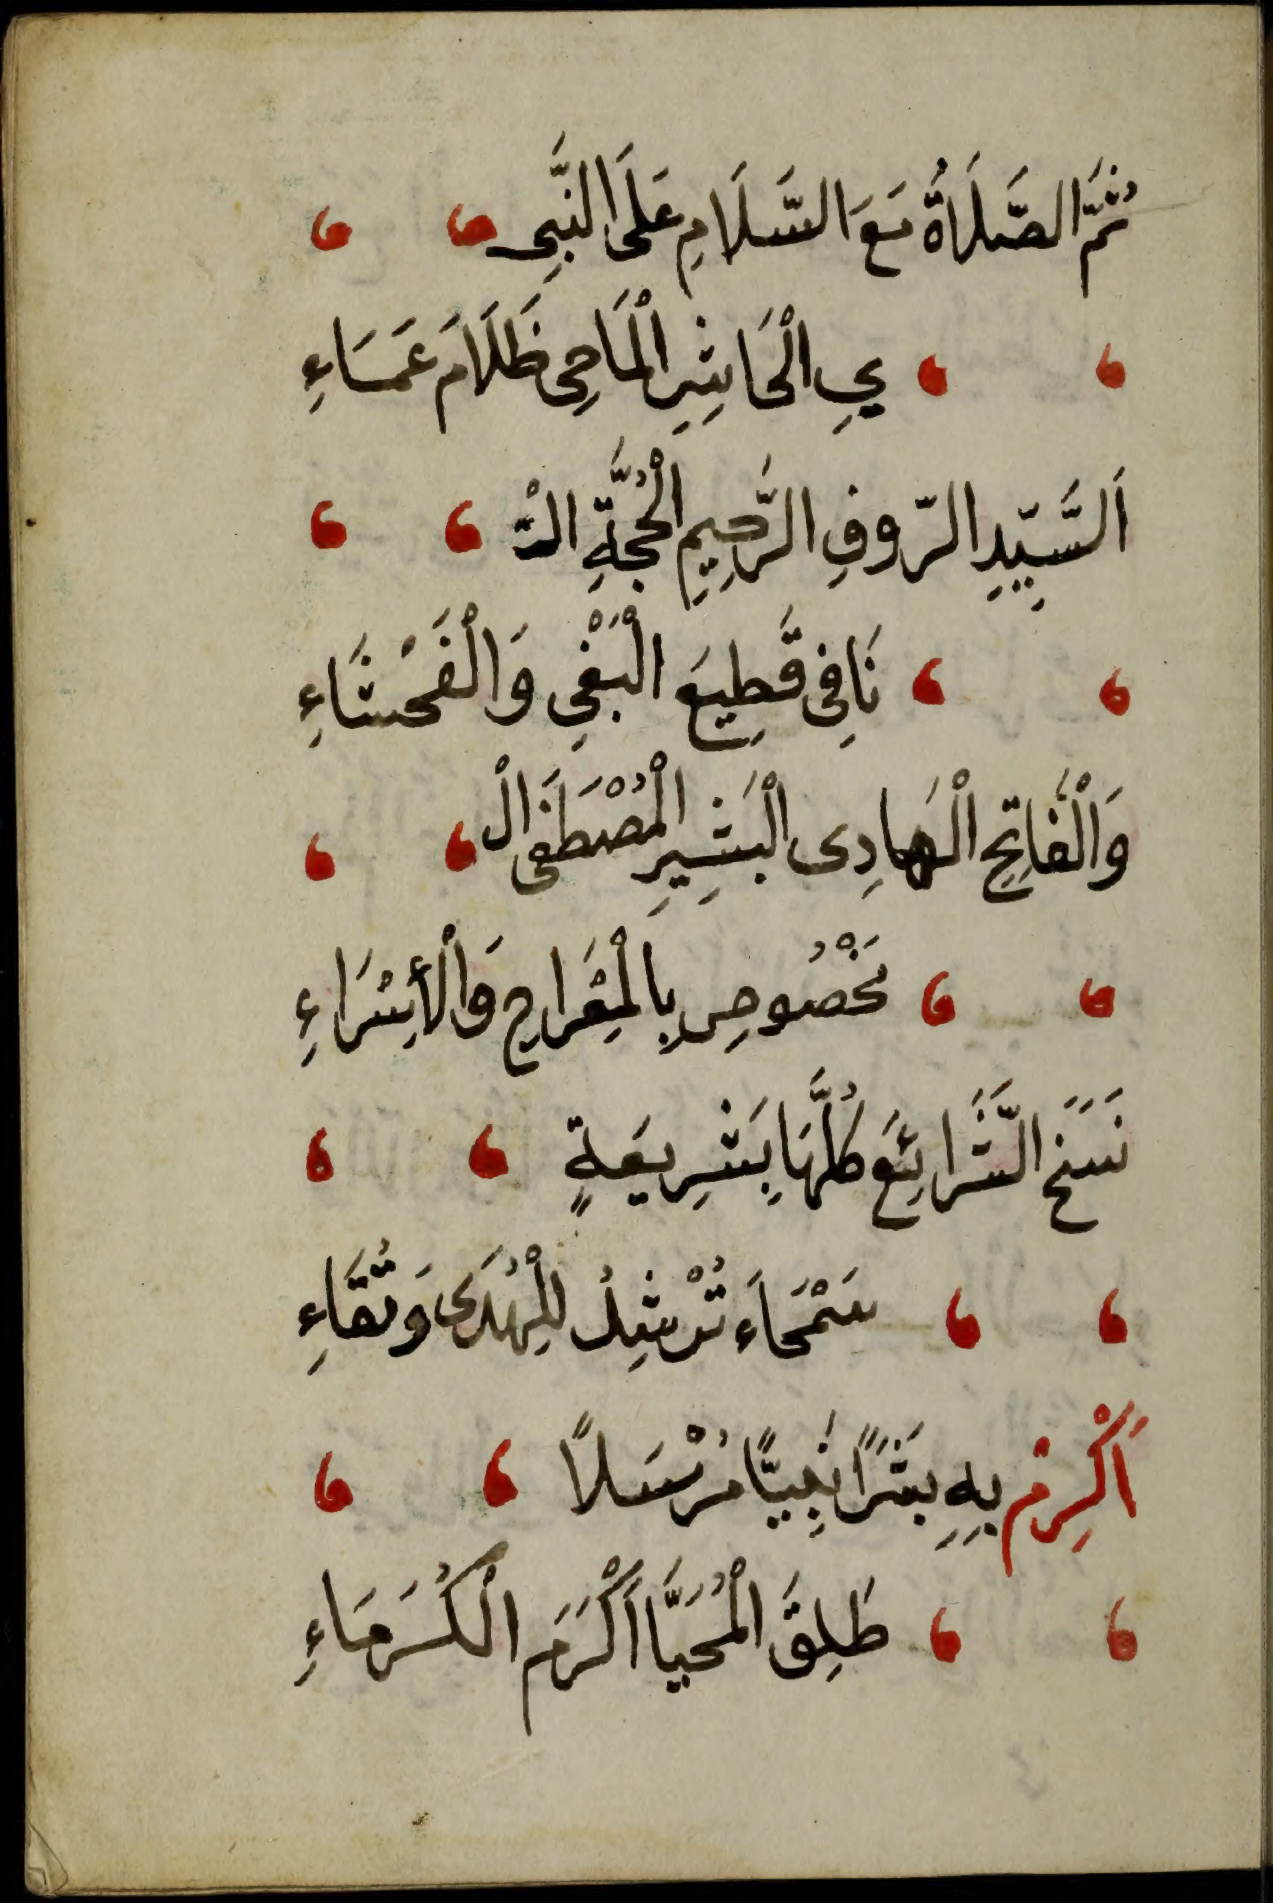 ثُمَّ الصَّلَاةُ مَعَ السَّلَامِ عَلَى النَّبِى
يِ الْحَاشِرِ الْمَاحِى ظَلَامَ عَمَاءِ
اَلسَّيِّدِ الرّوفِ الرَّحِيمِ الْحُجَّةِ التْ
نَافِى قَطِيعَ الْبَغْىِ وَالْفَحْشَاءِ
وَالْفَاتِحِ الْهَادِى الْبَشِيرِ الْمُصْطَفَى الْ
مَخْصُوصِ بِالْمِعْرَاجِ وَالْأِسْرَاءِ
نَسَخَ الشَّرَائِعَ كُلَّهَا بِشَرِيعَةٍ
سَمْحَاءَ تُرْشِدُ لِلْهُدَى وَتُقَاءِ
اَكْرِمْ بِهِ بَشَرًا نَبِيًّا مُرْسَلاً
طَلِقَ الْمُحَيَّا اَكْرَمَ الْكُرَمَاءِ